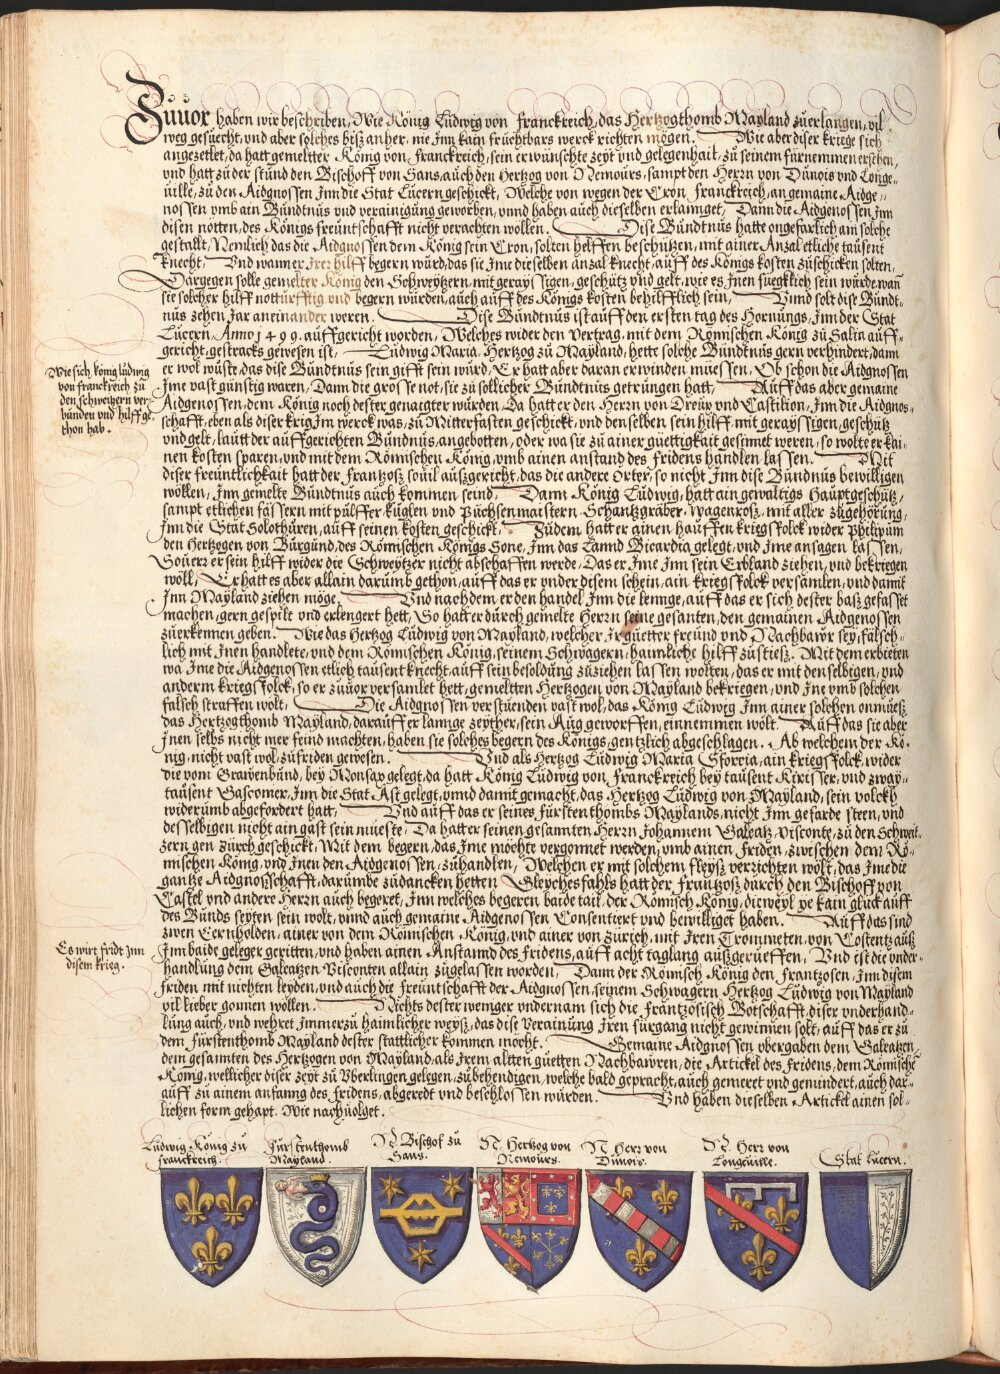 Zuuor haben wir beschriben, Wie König Ludwig von franckreich, das Hertzogthomb Mayland zuerlangen, vil
weg gesuecht, und aber solches bisz anher, nie Inn kain fruchtbars werck richten mögen. Wie aber diser kriege sich
angezetlet, da hatt gemeltter König von franckreich, sein erwünschte zeyt und gelegenhait, zu seinem fürnemmen ersehen,
und hatt zu der stund den Bischoff von Sans, auch den Hertzog von Nemours, sampt den Herrn von Dunois vnd Longe-
uille, zu den Aidgnossen Inn die Stat Lucern geschickt, Welche von wegen der Cron franckreich, an gemaine Aidge-
nossen vmb ain Bündtnus vnd verainigung geworben, vnnd haben auch dieselben erlannget, Dann die Aidgenossen Inn
disen notten, des Königs freuntschafft nicht verachten wollen. Dise Bündtnus hatte ongefarlich am solche
gestallt, Nemlich das die Aidgnossen dem König sein Cron, solten helffen beschutzen, mit ainer Anzal etliche tausent
knecht, Vnd wann er Irer hilff begern würd, das sie Ime dieselben anzal knecht, auff des Königs kosten zuschicken solten,
Dargegen solle gemelter König den Schweytzern, mit geraysigen, geschutz vnd gelt, wie es Inen fuegklich sein würde, wan
sie solcher hilff notturfftig vnd begern würden, auch auff des Königs kosten behilfflich sein, Vnnd solt dise Bündt-
nus zehen Jar aneinander weren. Dise Bündtnus ist auff den ersten tag des Hornungs, Inn der Stat
Lucern, Anno 1499. auffgericht worden, Welches wider den Vertrag, mit dem Römischen König zu Salin auff-
gericht, gestracks gewesen ist, Ludwig Maria, Hertzog zu Mayland, hette solche Bündtnus gern verhindert, dann
er wol wuste, das dise Bündtnus sein gifft sein würd, Er hatt aber daran erwinden muessen, Ob schon die Aidgnossen
Ime vast günstig waren, Dann die grosse not, sie zu sollicher Bündtnus getrungen hatt, Auff das aber gemaine
Aidgenossen, dem König noch dester genaigter würden, Da hatt er den Herrn von Dreux vnd Castilion, Inn die Aidgnos-
schafft, eben als diser krig Im werck was, zu Mitterfasten geschickt, vnd denselben sein hilff, mit geraysigen, geschutz
vnd gelt, lautt der auffgerichten Bündtnus, angebotten, oder wa sie zu ainer guettigkait gesinnet weren, so wolt er kai-
nen kosten sparen, vnd mit dem Römischen König, vmb ainen anstand des fridens handlen lassen. Mit
diser freuntlichkait hatt der frantzosz souil auszgericht, das die andere Orter, so nicht Inn dise Bündtnus bewilligen
wöllen, Inn gemelte Bündtnus auch kommen seind, Dann König Ludwig, hatt ain gewaltigs Hauptgeschutz,
sampt etlichen fässern mit pulffer, kuglen vnd Puchsenmaistern, Schantzgräber, Wagenrosz, mit aller zugehörung,
Inn die Stat Solothurn, auff seinen kosten geschickt, Zudem hatt er ainen hauffen kriegszvolck wider Philippum
den Hertzogen von Burgund, des Römischen Königs Sone, Inn das Lannd Picardia gelegt, vnd Ime ansagen lassen,
Souerr er sein hilff wider die Schweytzer nicht abschaffen werde, Das er Ime Inn sein Erbland ziehen, vnd bekriegen
wöll, Er hatt es aber allain darumb gethon, auff das er vnder disem schein, ain kriegszvolck versamlen, vnd damit
Inn Mayland ziehen möge. Vnd nachdem er den handel Inn die lennge, auff das er sich dester basz gefasset
machen, gern gespilt vnd erlengert hett, So hatt er durch gemelte Herrn seine gesanten, den gemainen Aidgenossen
zuerkennen geben. Wie das Hertzog Ludwig von Mayland, welcher Ir guetter freund vnd Nachbawr sey, falsch-
lich mit Inen handlete, vnd dem Römischen König, seinem Schwagern, haimliche hilff zustiesz. Mit dem erbieten
wa Ime die Aidgenossen etlich tausent knecht, auff sein besoldung zuziehen lassen wolten, das er mit denselbigen, vnd
anderm kriegszvolck, so er zuuor versamlet hett, gemeltten Hertzogen von Mayland bekriegen, vnd Ine vmb solchen
falsch straffen wolt, Die Aidgnossen verstuenden vast wol, das König Ludwig Inn ainer solchen onmuesz
das Hertzogthomb Mayland, darauff er lannge zeyther, sein Aug geworffen, einnemmen wölt. Auff das sie aber
Inen selbs nicht mer feind machten, haben sie solches begern des Königs, gentzlich abgeschlagen. Ab welchem der Kö-
nig, nicht vast wol zufriden gewesen. Vnd als Hertzog Ludwig Maria Sforcia, ain kriegszvolck, wider
die vom Grawenbund, bey Monsax gelegt, da hatt König Ludwig von franckreich bey tausent Kirisser, vnd zway-
tausent Gasconier, Inn die Stat Ast gelegt, vnnd damit gemacht, das Hertzog Ludwig von Mayland, sein volckh
widerumb abgefordert hatt, Vnd auff das er seines fürstenthombs Maylands, nicht Inn gefarde steen, vnd
desselbigen nicht ain gast sein mueste, Da hatt er seinen gesannten Herrn Johannem Galeatz Visconte, zu den Schweit-
zern gen Zürch geschickt, Mit dem begern, das Ime möchte vergonnet werden, vmb ainen friden, zwischen dem Rö-
mischen König, vnd Inen den Aidgenossen, zuhandlen, Welchen er mit solchem fleysz verrichten wolt, das Ime die
gantze Aidgnosschafft, darumbe zudancken hetten, Gleychesfahls hatt der frantzosz durch den Bischoff von
Castel vnd andere Herrn auch begert, Inn welches begeren baide tail, der Römisch König, dieweyl ye kain gluck auff
des Bunds seyten sein wolt, vnnd auch gemaine Aidgenossen Consentiert vnd bewilliget haben. Auff das sind
zwen Ernholden, ainer von dem Römischen König, vnd ainer von Zürich, mit Iren Trommeten, von Costentz ausz
Inn baide geleger geritten, vnd haben ainen Anstannd des fridens, auff acht taglang auszgerueffen, Vnd ist die vnder-
handlung dem Galeatzen Visconten allain zugelassen worden, Dann der Römisch König den frantzosen, Inn disem
friden mit nichten leyden, vnd auch die freuntschafft der Aidgnossen, seinem Schwagern Hertzog Ludwig von Mayland
vil lieber gonnen wollen. Nichts dester weniger vndernam sich die frantzösisch Botschafft, diser vnderhand-
lung auch, vnd wehret Immerzu haimlicher weysz, das dise Verainung Iren fürgang nicht gewinnen solt, auff das er zu
dem fürstenthomb Mayland dester stattlicher kommen möcht. Gemaine Aidgnossen vbergaben dem Galeatzen
dem gesannten des Hertzogen von Mayland, als Irem altten guetten Nachbawren, die Artickel des fridens, dem Römische
König, wellicher diser zeyt zu Vberlingen gelegen, zubehendigen, welche bald gepracht, auch gemeret vnd gemindert, auch dar-
auff zu ainem anfanng des fridens, abgeredt vnd beschlossen wurden. Vnd haben dieselben Artickel ainen sol-
lichen form gehapt. Wie nachuolget.
Wie sich könig Ludwig
von franckreich zu
den schweitzern ver-
bunden vnd hilff ge-
thon hab.
Es wirt fridt Inn
disem krieg.
Ludwig König zu
franckreich.
Fürstenthomb
Mayland.
N. Bischof zu
Sans.
N. Hertzog von
Nemours.
N. Herr von
Dunois.
N. Herr von
Longeuille.
Stat Lucern.